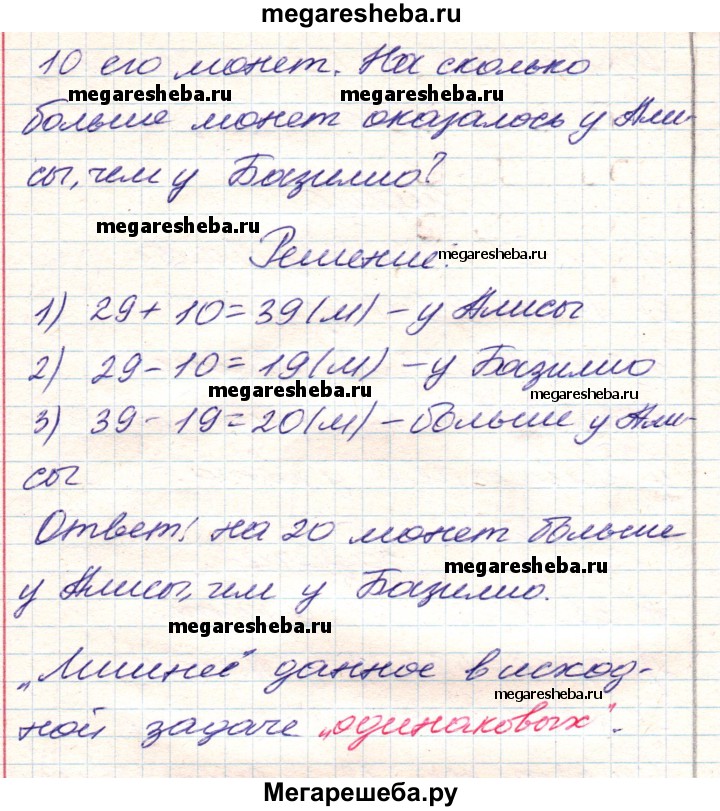 megaresheba.ru
10 его монет. На сколько
megaresheba.ru megaresheba.ru
больше монет оказалось у Али-
сы, чем у Базилио?
megaresheba.ru
Решение:
megaresheba.ru
1) 29 + 10 = 39 (м) – у Алисы
2) 29 - 10 = 19 (м) – у Базилио
megaresheba.ru
3) 39 - 19 = 20 (м) – больше у Али-
сы
Ответ: на 20 монет больше
megaresheba.ru
у Алисы, чем у Базилио.
megaresheba.ru
„Лишнее" данное в исход-
megaresheba.ru
ной задаче „одинаковых".
Мегарешеба.ру